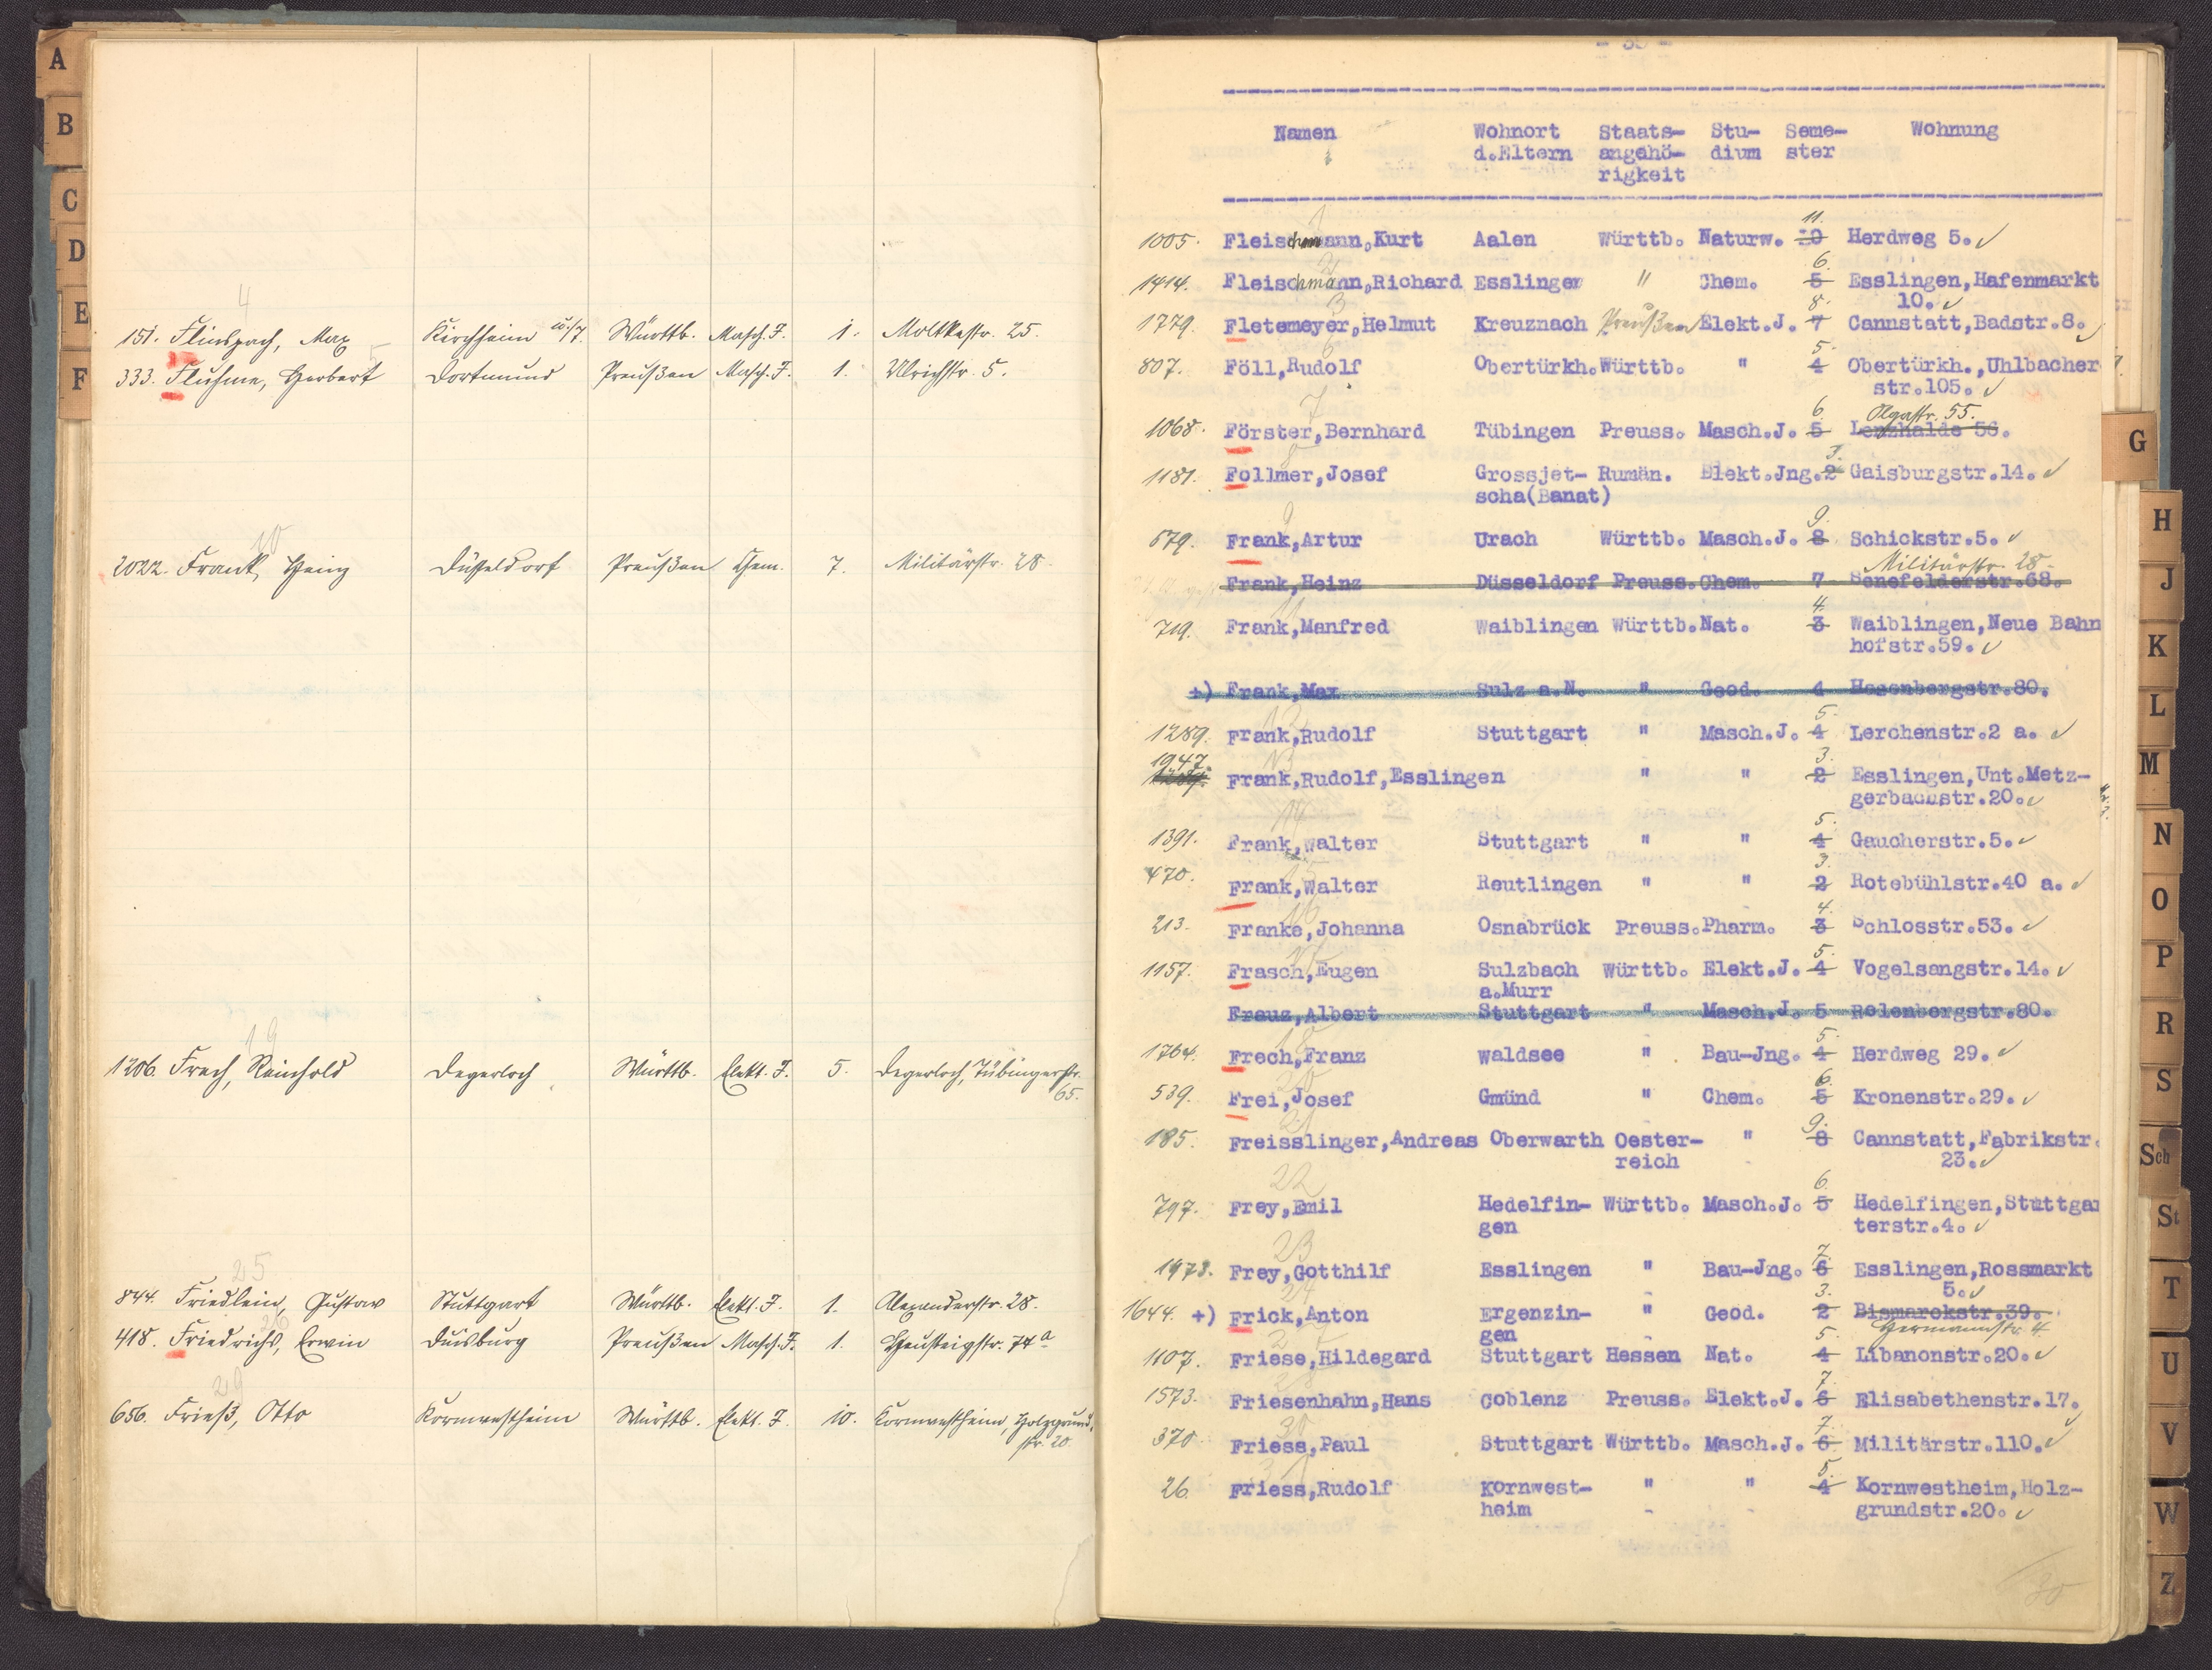 A
B
C
D
E
F
4
151. Flinspach, Max Kirchheim u./T. Württb. Masch. J. 1. Moltkestr. 25.
5
333. Fluhme, Herbert Dortmund Preußen Masch. J. 1. Ulrichstr. 5.
10
2022. Frank, Heinz Düsseldorf Preußen Chem. 7. Militärstr. 28.
19
1206. Frech, Reinhold Degerloch Württb. Elekt. J. 5. Degerloch, Tübingerstr.
65.
25
844. Friedlein, Gustav Stuttgart Württb. Elekt. J. 1. Alexanderstr. 28.
26
418. Friedrichs, Erwin Duisburg Preußen Masch. J. 1. Heusteigstr. 74 a
29
656. Frieß, Otto Kornwestheim Württb. Elekt. J. 10. Kornwestheim, Holzgrund-
str. 20.
Namen Wohnort Staats- Stu- Seme- Wohnung
d.Eltern angehö- dium ster
rigkeit
1 11.
1005. Fleischmann,Kurt Aalen Württb. Naturw. 10 Herdweg 5. ✓
2 6.
1414. Fleischmann,Richard Esslingen " Chem. 5 Esslingen,Hafenmarkt
3 8. 10. ✓
1779. Fletemeyer,Helmut Kreuznach Preußen Elekt.J. 7 Cannstatt,Badstr.8. ✓
6 5.
807. Föll,Rudolf Obertürkh.Württb. " 4 Obertürkh.,Uhlbacher
str.105. ✓
7 6. Olgastr. 55.
1068. Förster,Bernhard Tübingen Preuss. Masch.J. 5 Lenzhalde 56.
8 3.
1181. Follmer,Josef Grossjet- Rumän. Elekt.Jng.2 Gaisburgstr.14. ✓
scha(Banat)
9 9.
579. Frank,Artur Urach Württb. Masch.J. 8 Schickstr.5. ✓
Militärstr. 28.
Frank,Heinz Düsseldorf Preuss.Chem. 7 Senefelderstr.68.
11 4.
719. Frank,Manfred Waiblingen Württb.Nat. 3 Waiblingen,Neue Bahn
hofstr.59. ✓
+) Frank,Max Sulz a.N. " Geod. 4 Hasenbergstr.80.
12 5.
1289. Frank,Rudolf Stuttgart " Masch.J. 4 Lerchenstr.2 a. ✓
1947. 13 3.
Frank,Rudolf,Esslingen " " 2 Esslingen,Unt.Metz-
gerbachstr.20. ✓
14 5.
1391. Frank,Walter Stuttgart " " 4 Gaucherstr.5. ✓
15 3.
470. Frank,Walter Reutlingen " " 2 Rotebühlstr.40 a. ✓
16 4.
213. Franke,Johanna Osnabrück Preuss.Pharm. 3 Schlosstr.53. ✓
17 5.
1157. Frasch,Eugen Sulzbach Württb. Elekt.J. 4 Vogelsangstr.14. ✓
a.Murr
Frauz,Albert Stuttgart " Masch.J. 5 Relenbergstr.80.
18 5.
1764. Frech,Franz Waldsee " Bau-Jng. 4 Herdweg 29. ✓
20 6.
539. Frei,Josef Gmünd " Chem. 5 Kronenstr.29. ✓
21 9.
185. Freisslinger,Andreas Oberwarth Oester- " 8 Cannstatt,Fabrikstr.
reich 23. ✓
22 6.
797. Frey,Emil Hedelfin- Württb. Masch.J. 5 Hedelfingen,Stuttgar
gen terstr.4. ✓
23 7.
1973. Frey,Gotthilf Esslingen " Bau-Jng. 6 Esslingen,Rossmarkt
24 3. 5. ✓
1644. +) Frick,Anton Ergenzin- " Geod. 2 Bismarckstr.39.
gen Hermannstr. 4
27 5.
1107. Friese,Hildegard Stuttgart Hessen Nat. 4 Libanonstr.20. ✓
28 7.
1573. Friesenhahn,Hans Coblenz Preuss. Elekt.J. 6 Elisabethenstr.17. ✓
30 7.
370 Friess,Paul Stuttgart Württb. Masch.J. 6 Militärstr.110. ✓
31 5.
26. Friess,Rudolf Kornwest- " " 4 Kornwestheim,Holz-
heim grundstr.20. ✓
30
G
H
J
K
L
M
N
O
P
R
S
Sch
St
T
U
V
W
Z